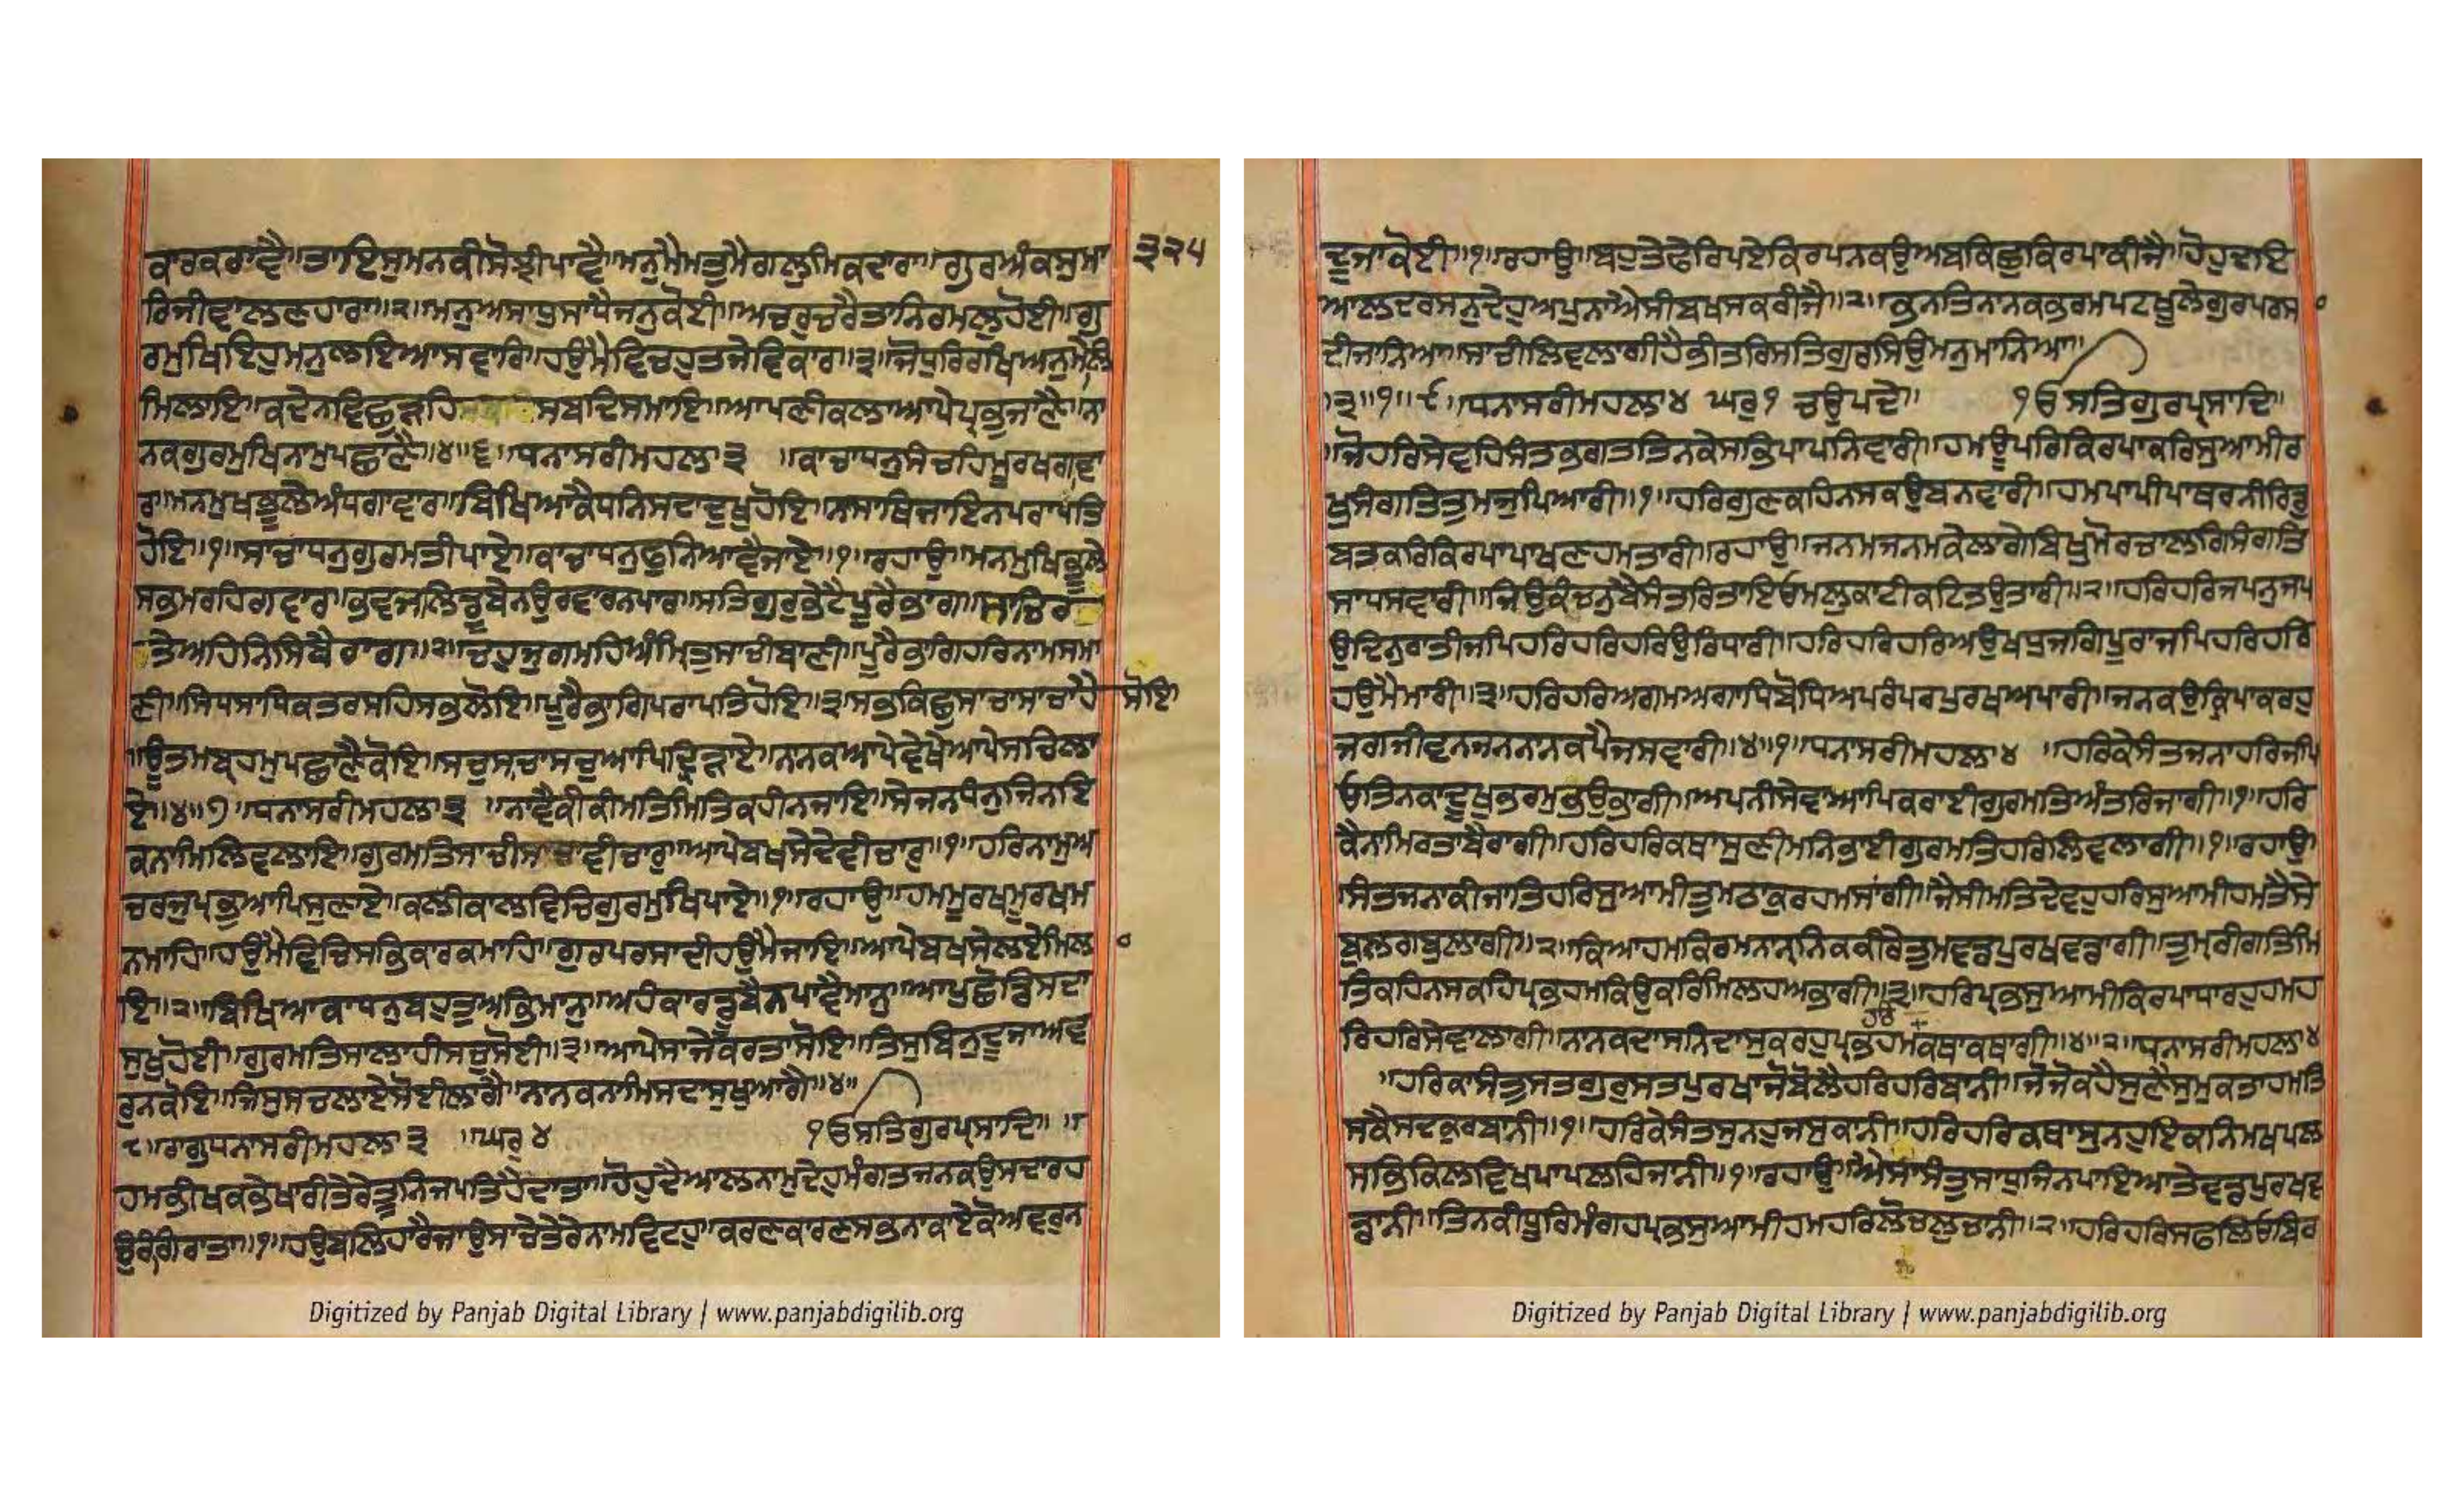 ਕਾਰਕਰਾਵੈ॥ਤਾਇਸੁਮਨਕੀਸੋਝੀਪਾਵੈ॥ਮਨੁਮੈਮਤੁਮੈਗਲੁਮਿਕਦਾਰਾ॥ਗੁਰਅੰਕਸੁਮਾ ੩੨੫
ਰਿਜੀਵਾਲਣਹਾਰਾ॥੨॥ਮਨੁਅਸਾਧੁਸਾਧੈਜਨੁਕੋਈ॥ਅਚਰੁਚਰੈਤਾਨਿਰਮਲੁਹੋਈ॥ਗੁ
ਰਮੁਖਿਇਹੁਮਨੁਲਇਆਸਵਾਰਿ॥ਹਉਮੈਵਿਚਹੁਤਜੇਵਿਕਾਰ॥੩॥ਜੋਧੁਰਿਰਾਖਿਅਨੁਮੇਲਿ
ਮਿਲਾਇ॥ਕਦੇਨਵਿਛੁੜਹਿ ਸਬਦਿਸਮਾਇ॥ਆਪਣੀਕਲਾਆਪੇਪ੍ਰਭੁਜਾਣੈ॥ਨਾ
ਨਕਗੁਰਮੁਖਿਨਾਮੁਪਛਾਣੈ॥੪॥੬॥ਧਨਾਸਰੀਮਹਲਾ੩ ॥ਕਾਚਾਧਨੁਸੰਚਹਿਮੂਰਖਗਾਵਾ
ਰ॥ਮਨਮੁਖਭੂਲੇਅੰਧਗਾਵਾਰ॥ਬਿਖਿਆਕੈਧਨਿਸਦਾਦੁਖੁਹੋਇ॥ਨਸਾਥਿਜਾਇਨਪਰਾਪਤਿ
ਹੋਇ॥੧॥ਸਾਚਾਧਨੁਗੁਰਮਤੀਪਾਏ॥ਕਾਚਾਧਨੁਫੁਨਿਆਵੈਜਾਏ॥੧॥ਰਹਾਉ॥ਮਨਮੁਖਿਭੂਲੇ
ਸਭਮਰਹਿਗਵਾਰ॥ਭਵਜਲਿਡੂਬੇਨਉਰਵਾਰਨਪਾਰ॥ਸਤਿਗੁਰੁਭੇਟੈਪੂਰੈਭਾਗ॥ਸਾਚਿਰ
ਤੇਅਹਿਨਿਸਿਬੈਰਾਗ॥੨॥ਚਹੁਜੁਗਮਹਿਅੰਮ੍ਰਿਤੁਸਾਚੀਬਾਣੀ॥ਪੂਰੈਭਾਗਿਹਰਿਨਾਮਸਮਾ
ਣੀ॥ਸਿਧਸਾਧਿਕਤਰਸਹਿਸਭੁਲੋਇ॥ਪੂਰੈਭਾਗਿਪਰਾਪਤਿਹੋਇ॥੩॥ਸਭੁਕਿਛੁਸਾਚਾਸਾਚਾਹੈ ਸੋਇ
॥ਊਤਮਬ੍ਰਹਮੁਪਛਾਣੈਕੋਇ॥ਸਚੁਸਚਾਸਚੁਆਪਿਦ੍ਰਿੜਾਏ॥ਨਾਨਕਆਪੇਵੇਖੈਆਪੇਸਚਿਲਾ
ਏ॥੪॥੭॥ਧਨਾਸਰੀਮਹਲਾ੩ ॥ਨਾਵੈਕੀਕੀਮਤਿਮਿਤਿਕਹੀਨਜਾਇ॥ਸੇਜਨਧੰਨੁਜਿਨਇ
ਕਨਾਮਿਲਿਵਲਾਇ॥ਗੁਰਮਤਿਸਾਚੀਸਾਚਾਵੀਚਾਰੁ॥ਆਪੇਬਖਸੇਦੇਵੀਚਾਰੁ॥੧॥ਹਰਿਨਾਮੁਅ
ਚਰਜੁਪ੍ਰਭੁਆਪਿਸੁਣਾਏ॥ਕਲੀਕਾਲਵਿਚਿਗੁਰਮੁਖਿਪਾਏ॥੧॥ਰਹਾਉ॥ਹਮਮੂਰਖਮੂਰਖਮ
ਨਮਾਹਿ॥ਹਉਮੈਵਿਚਿਸਭਿਕਾਰਕਮਾਹਿ॥ਗੁਰਪਰਸਾਦੀਹਉਮੈਜਾਇ॥ਆਪੇਬਖਸੇਲਏਮਿਲਾ
ਇ॥੨॥ਬਿਖਿਆਕਾਧਨੁਬਹੁਤੁਅਭਿਮਾਨੁ॥ਅਹੰਕਾਰਡੂਬੈਨਪਾਵੈਮਾਨੁ॥ਆਪੁਛੋਡਿਸਦਾ
ਸੁਖੁਹੋਈ॥ਗੁਰਮਤਿਸਾਲਾਹੀਸਚੁਸੋਈ॥੩॥ਆਪੇਸਾਜੇਕਰਤਾਸੋਇ॥ਤਿਸੁਬਿਨੁਦੂਜਾਅਵ
ਰੁਨਕੋਇ॥ਜਿਸੁਸਚਲਾਏਸੋਈਲਾਗੈ॥ਨਾਨਕਨਾਮਿਸਦਾਸੁਖੁਆਗੈ॥੪॥
੮॥ਰਾਗੁਧਨਾਸਰੀਮਹਲਾ੩ ॥ਘਰੁ੪ ੴਸਤਿਗੁਰਪ੍ਰਸਾਦਿ॥ ॥
ਹਮਭੀਖਕਭੇਖਾਰੀਤੇਰੇਤੂਨਿਜਪਤਿਹੈਦਾਤਾ॥ਹੋਹੁਦੈਆਲਨਾਮੁਦੇਹੁਮੰਗਤਜਨਕਉਸਦਾਰਹ
ਉਰੰਗਿਰਾਤਾ॥੧॥ਹਉਬਲਿਹਾਰੈਜਾਉਸਾਚੇਤੇਰੇਨਾਮਵਿਟਹੁ॥ਕਰਣਕਾਰਣਸਭਨਾਕਾਏਕੋਅਵਰੁਨ
ਦੂਜਾਕੋਈ॥੧॥ਰਹਾਉ॥ਬਹੁਤੇਫੇਰਪਏਕਿਰਪਨਕਉਅਬਕਿਛੁਕਿਰਪਾਕੀਜੈ॥ਹੋਹੁਦਇ
ਆਲਦਰਸਨੁਦੇਹੁਅਪੁਨਾਐਸੀਬਖਸਕਰੀਜੈ॥੨॥ਭਨਤਿਨਾਨਕਭਰਮਪਟਖੂਲੇਗੁਰਪਰਸਾ
ਦੀਜਾਨਿਆ॥ਸਾਚੀਲਿਵਲਾਗੀਹੈਭੀਤਰਿਸਤਿਗੁਰਸਿਉਮਨੁਮਾਨਿਆ॥
੩॥੧॥੯॥ਧਨਾਸਰੀਮਹਲਾ੪ ਘਰੁ੧ ਚਉਪਦੇ॥ ੴਸਤਿਗੁਰਪ੍ਰਸਾਦਿ॥
॥ਜੋਹਰਿਸੇਵਹਿਸੰਤਭਗਤਤਿਨਕੇਸਭਿਪਾਪਨਿਵਾਰੀ॥ਹਮਊਪਰਿਕਿਰਪਾਕਰਿਸੁਆਮੀਰ
ਖੁਸੰਗਤਿਤੁਮਜੁਪਿਆਰੀ॥੧॥ਹਰਿਗੁਣਕਹਿਨਸਕਉਬਨਵਾਰੀ॥ਹਮਪਾਪੀਪਾਥਰਨੀਰਿਡੁ
ਬਤਕਰਿਕਿਰਪਾਪਾਖਣਹਮਤਾਰੀ॥ਰਹਾਉ॥ਜਨਮਜਨਮਕੇਲਾਗੇਬਿਖੁਮੋਰਚਾਲਗਿਸੰਗਤਿ
ਸਾਧਸਵਾਰੀ॥ਜਿਉਕੰਚਨੁਬੈਸੰਤਰਿਤਾਇਓਮਲੁਕਾਟੀਕਟਿਤਉਤਾਰੀ॥੨॥ਹਰਿਹਰਿਜਪਨੁਜਪ
ਉਦਿਨੁਰਾਤੀਜਪਿਹਰਿਹਰਿਹਰਿਉਰਿਧਾਰੀ॥ਹਰਿਹਰਿਹਰਿਅਉਖਧੁਜਗਿਪੂਰਾਜਪਿਹਰਿਹਰਿ
ਹਉਮੈਮਾਰੀ॥੩॥ਹਰਿਹਰਿਅਗਮਅਗਾਧਿਬੋਧਿਅਪਰੰਪਰਪੁਰਖਅਪਾਰੀ॥ਜਨਕਉਕ੍ਰਿਪਾਕਰਹੁ
ਜਗਜੀਵਨਜਨਨਾਨਕਪੈਜਸਵਾਰੀ॥੪॥੧॥ਧਨਾਸਰੀਮਹਲਾ੪ ॥ਹਰਿਕੇਸੰਤਜਨਾਹਰਿਜਪਿ
ਓਤਿਨਕਾਦੂਖੁਭਰਮੁਭਉਭਾਗੀ॥ਅਪਨੀਸੇਵਾਆਪਿਕਰਾਈਗੁਰਮਤਿਅੰਤਰਿਜਾਗੀ॥੧॥ਹਰਿ
ਕੈਨਾਮਿਰਤਾਬੈਰਾਗੀ॥ਹਰਿਹਰਿਕਥਾਸੁਣੀਮਨਿਭਾਈਗੁਰਮਤਿਹਰਿਲਿਵਲਾਗੀ॥੧॥ਰਹਾਉ॥
ਸੰਤਜਨਾਕੀਜਾਤਿਹਰਿਸੁਆਮੀਤੁਮਠਾਕੁਰਹਮਸਾਂਗੀ॥ਜੈਸੀਮਤਿਦੇਵਹੁਹਰਿਸੁਆਮੀਹਮਤੈਸੇ
ਬੁਲਗਬੁਲਾਗੀ॥੨॥ਕਿਆਹਮਕਿਰਮਨਾਨ੍ਹਨਿਕਕੀਰੇਤੁਮਵਡਪੁਰਖਵਡਾਗੀ॥ਤੁਮ੍ਹਰੀਗਤਿਮਿ
ਤਿਕਹਿਨਸਕਹਿਪ੍ਰਭਹਮਕਿਉਕਰਿਮਿਲਹਅਭਾਗੀ॥੩॥ਹਰਿਪ੍ਰਭਸੁਆਮੀਕਿਰਪਾਧਾਰਹੁਹਮਹ
ਰਿਹਰਿਸੇਵਾਲਾਗੀ॥ਨਾਨਕਦਾਸਨਿਦਾਸੁਕਰਹੁਪ੍ਰਭਹਮਕਥਾਕਥਾਗੀ॥੪॥੨॥ਧਨਾਸਰੀਮਹਲਾ੪
॥ਹਰਿਕਾਸੰਤੁਸਤਗੁਰੁਸਤਪੁਰਖਾਜੋਬੋਲੈਹਰਿਹਰਿਬਾਨੀ॥ਜੋਜੋਕਹੈਸੁਣੈਸੁਮੁਕਤਾਹਮਤਿ
ਸਕੈਸਦਕੁਰਬਾਨੀ॥੧॥ਹਰਿਕੇਸੰਤਸੁਨਹੁਜਸੁਕਾਨੀ॥ਹਰਿਹਰਿਕਥਾਸੁਨਹੁਇਕਨਿਮਖਪਲ
ਸਭਿਕਿਲਵਿਖਪਾਪਲਹਿਜਾਨੀ॥੧॥ਰਹਾਉ॥ਐਸਾਸੰਤੁਸਾਧੁਜਿਨਪਾਇਆਤੇਵਡਪੁਰਖਵ
ਡਾਨੀ॥ਤਿਨਕੀਧੂਰਿਮੰਗਹਪ੍ਰਭਸੁਆਮੀਹਮਹਰਿਲੋਚਲੁਚਾਨੀ॥੨॥ਹਰਿਹਰਿਸਫਲਿਓਬਿਰ
Digitized by Panjab Digital Library | www.panjabdigilib.org
Digitized by Panjab Digital Library | www.panjabdigilib.org